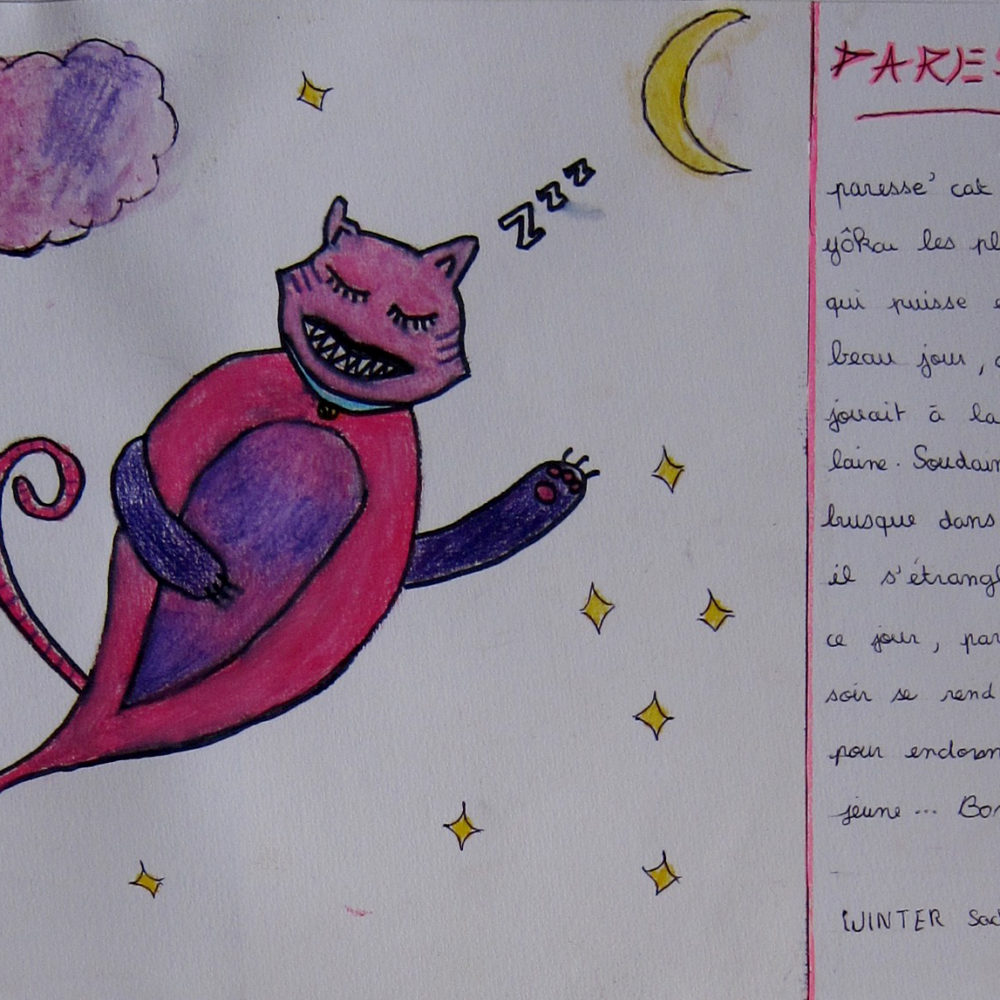 Zzz
PARES
paresse' cat
yôkai les pl
qui puisse
beau jour,
jouait à la
laine. Soudain
busque dans
il s'étrangl
ce jour, par
soir se rend
pour endorm
jeune... Bon
WINTER Sac